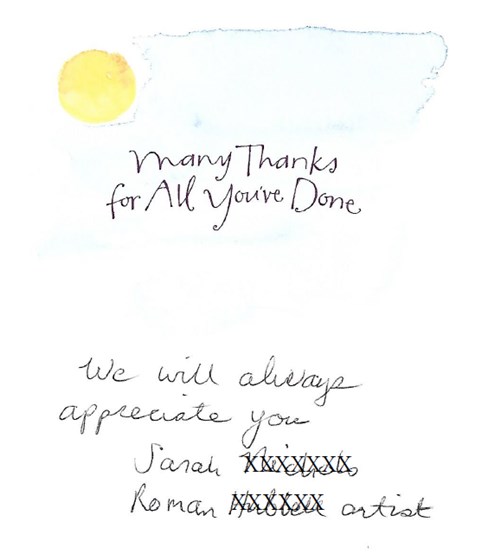 Many Thanks
for All You've Done
We will always
appreciate you
Sarah
Roman artist